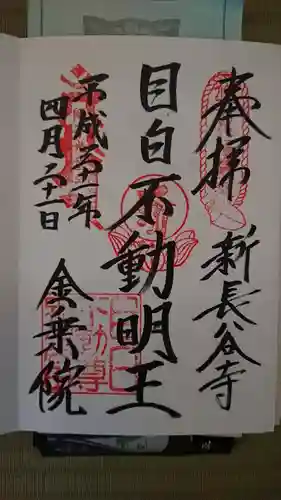 奉拝
新長谷寺
目白不動明王
平成三十一年
四月二十一日
金乗院